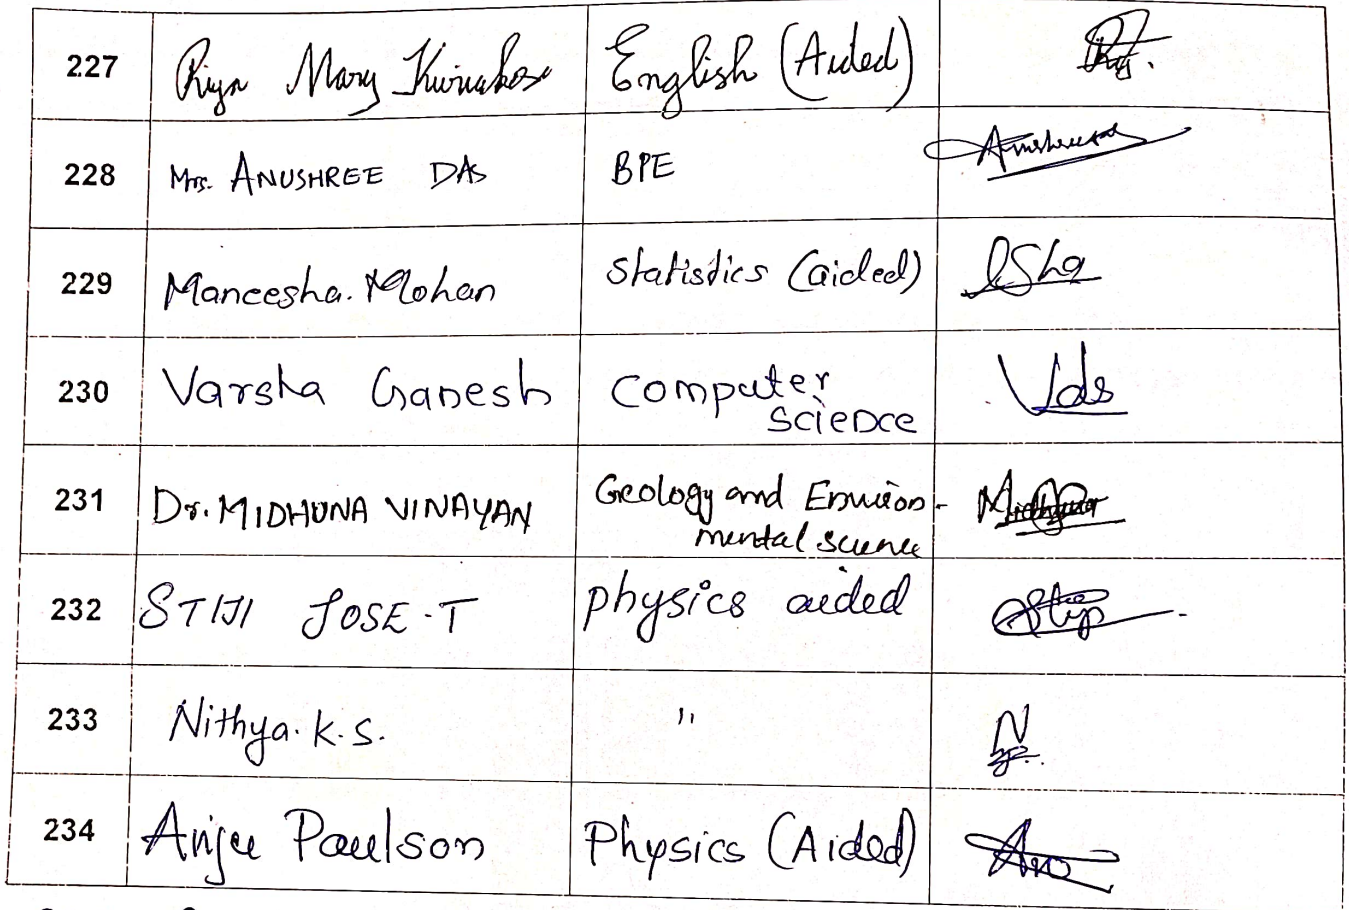 227 Riya Mary Kuriakose English (Aided)
228 Mrs. ANUSHREE DAS BPE
229 Maneesha. Mohan Statistics (aided)
230 Varsha Ganesh Computer
Science
231 Dr. MIDHUNA VINAYAN Geology and Environ-
mental science
232 STIJI JOSE-T physics aided
233 Nithya. K. S. "
234 Anju Paulson Physics (Aided)